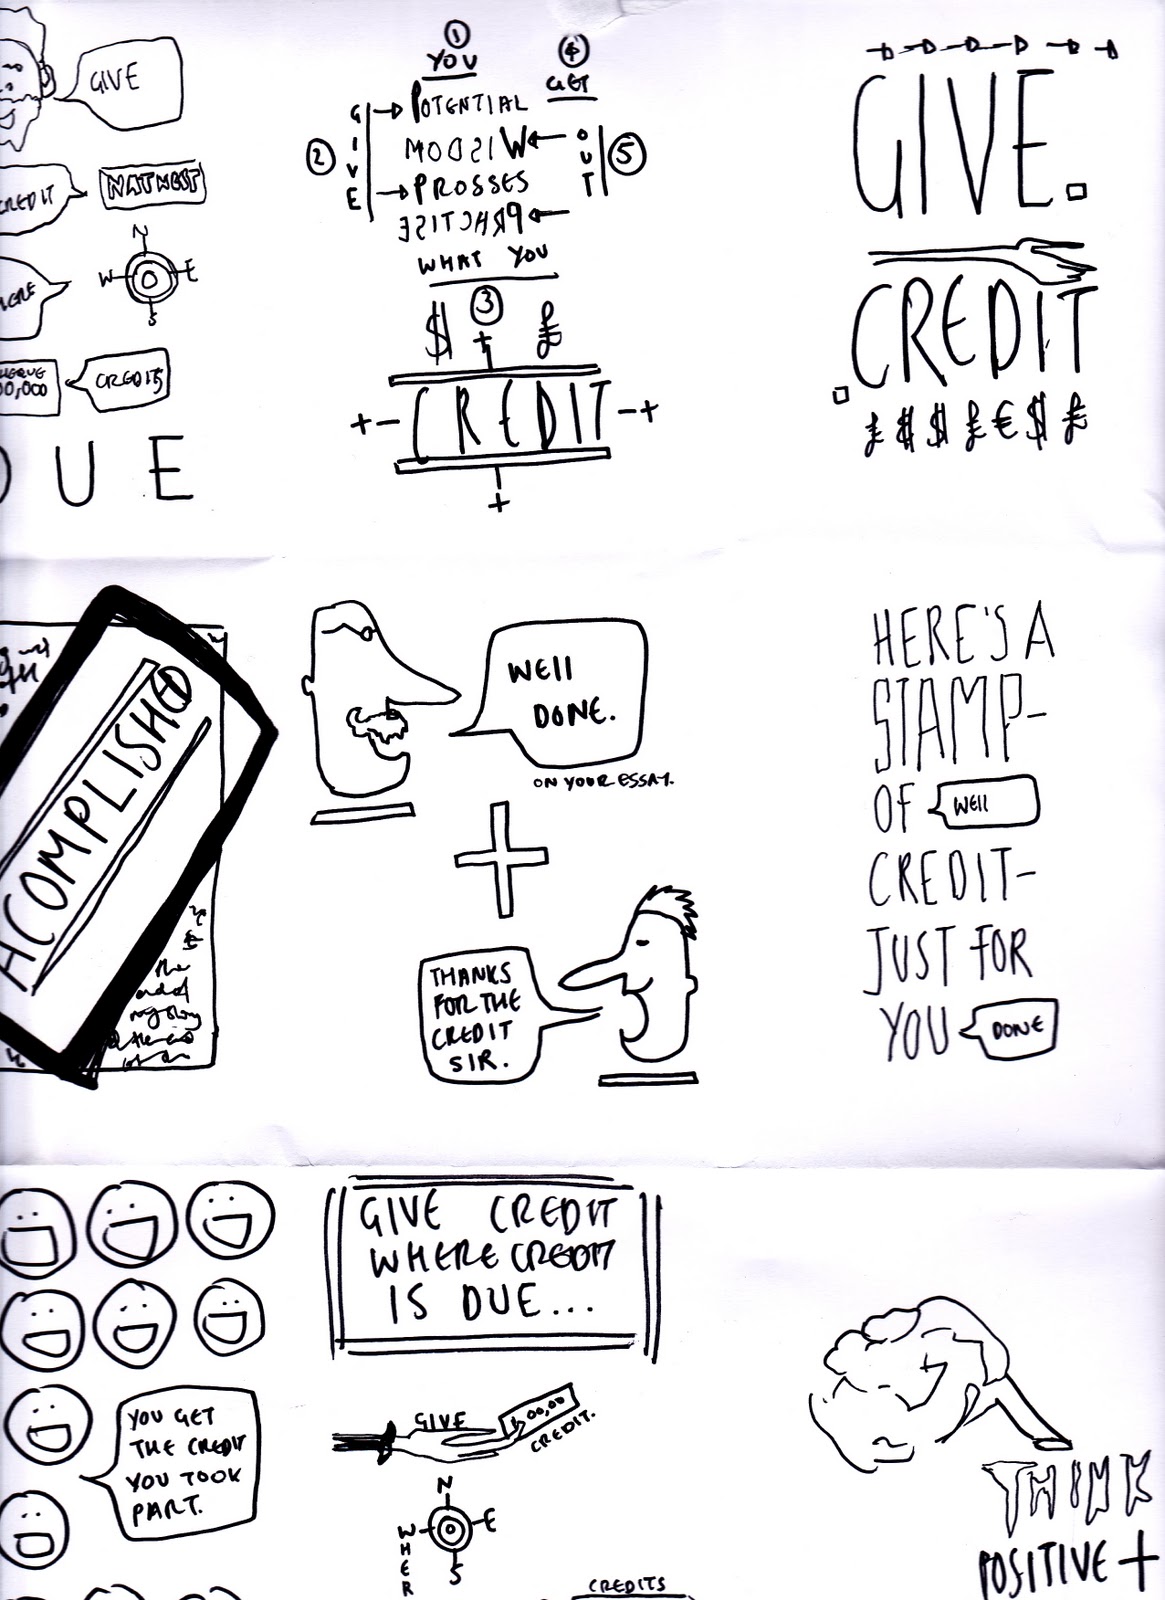 GIVE
CREDIT
NATWEST
N
W
E
S
00,000
CREDITS
U E
1
YOU
4
GET
2
GIVE
POTENTIAL
WISDOM
PROSSES
PRACTISE
OUT
5
WHAT YOU
$ 3 £
+
+- CREDIT -+
+
GIVE.
.CREDIT
£ $ $ £ € $ £
ACOMPLISHED
the
end of
my story
WEll
DONE.
ON YOUR ESSAY.
+
THANKS
FOR THE
CREDIT
SIR.
HERE'S A
STAMP-
OF WEll
CREDIT-
JUST FOR
YOU DONE
YOU GET
THE CREDIT
YOU TOOK
PART.
GIVE CREDIT
WHERE CREDIT
IS DUE...
GIVE
00,00
CREDIT.
N
W
E
S
HER
CREDITS
THINK
POSITIVE +